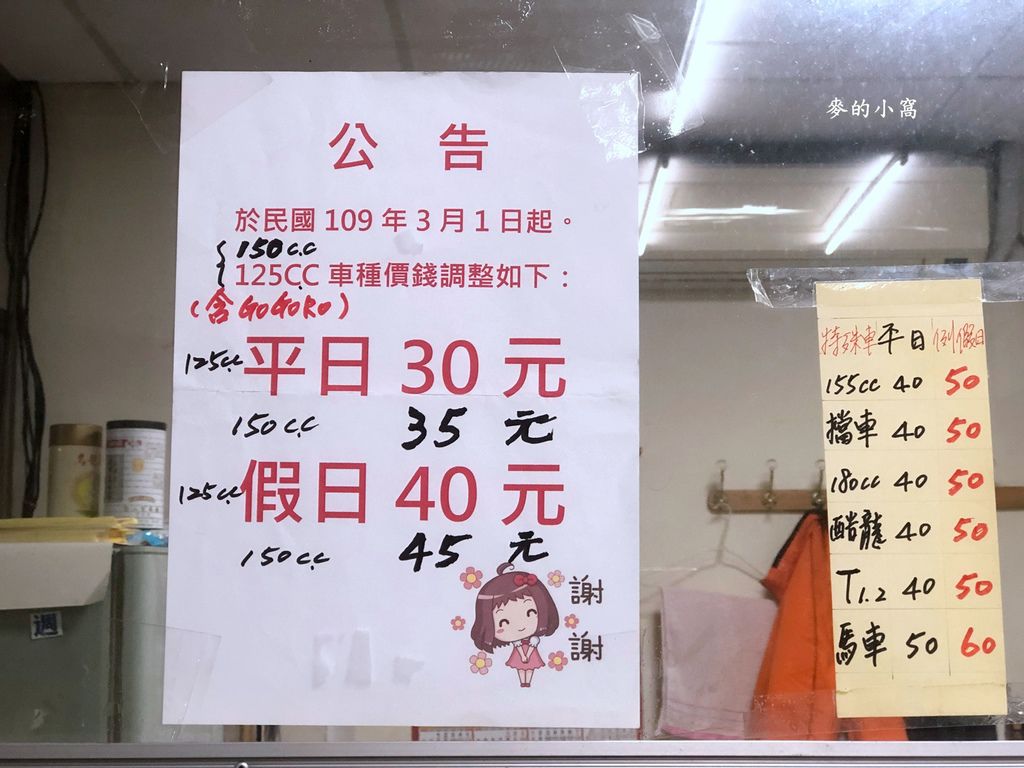 麥的小窩
公 告
於民國 109 年 3 月 1 日起。
150c.c.
125CC 車種價錢調整如下：
(含GOGORO)
125cc 平日 30 元
150c.c. 35 元
125cc 假日 40 元
150c.c. 45 元
謝
謝
特殊車 平日 例假日
155cc 40 50
擋車 40 50
180cc 40 50
酷龍 40 50
T1.2 40 50
馬車 50 60
週